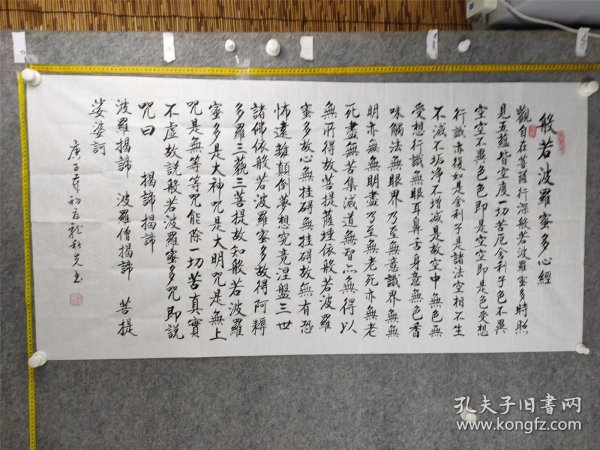 般若波羅蜜多心經
觀自在菩薩行深般若波羅蜜多時照
見五蘊皆空度一切苦厄舍利子色不異
空空不異色色即是空空即是色受想
行識亦復如是舍利子是諸法空相不生
不滅不垢淨不增減是故空中無色無
受想行識無眼耳鼻舌身意無色香
味觸法無眼界乃至無意識界無無
明亦無無明盡乃至無老死亦無老
死盡無苦集滅道無智亦無得以
無所得故菩提薩埵依般若波羅
蜜多故心無挂碍無挂碍故無有恐
怖遠離顛倒夢想究竟涅盤三世
諸佛依般若波羅蜜多故得阿耨
多羅三藐三菩提故知般若波羅
蜜多是大神咒是大明咒是無上
咒是無等等咒能除一切苦真實
不虛故説般若波羅蜜多咒即説
咒曰 揭諦揭諦
波羅揭諦 波羅僧揭諦 菩提
娑婆訶
庚子年初
孔夫子旧书网
www.kongfz.com